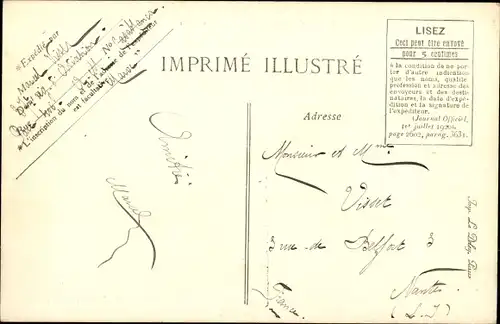 * Expédié par
* L'inscription du nom et de l'adresse de l'expéditeur
est facultative
IMPRIMÉ ILLUSTRÉ
LISEZ
Ceci peut être envoyé
pour 5 centimes
à la condition de ne por-
ter d'autre indication
que les noms, qualité
profession et adresse des
envoyeurs et des desti-
nataires, la date d'expé-
dition et la signature de
l'expéditeur.
(Journal Officiel,
1er juillet 1920.
page 2602, parag. 363).
Amitiés
Marcel
Adresse
Monsieur et Mme
Visset
3 rue de Belfort 3
Nantes
(L. I)
France
Imp. Le Deley, Paris